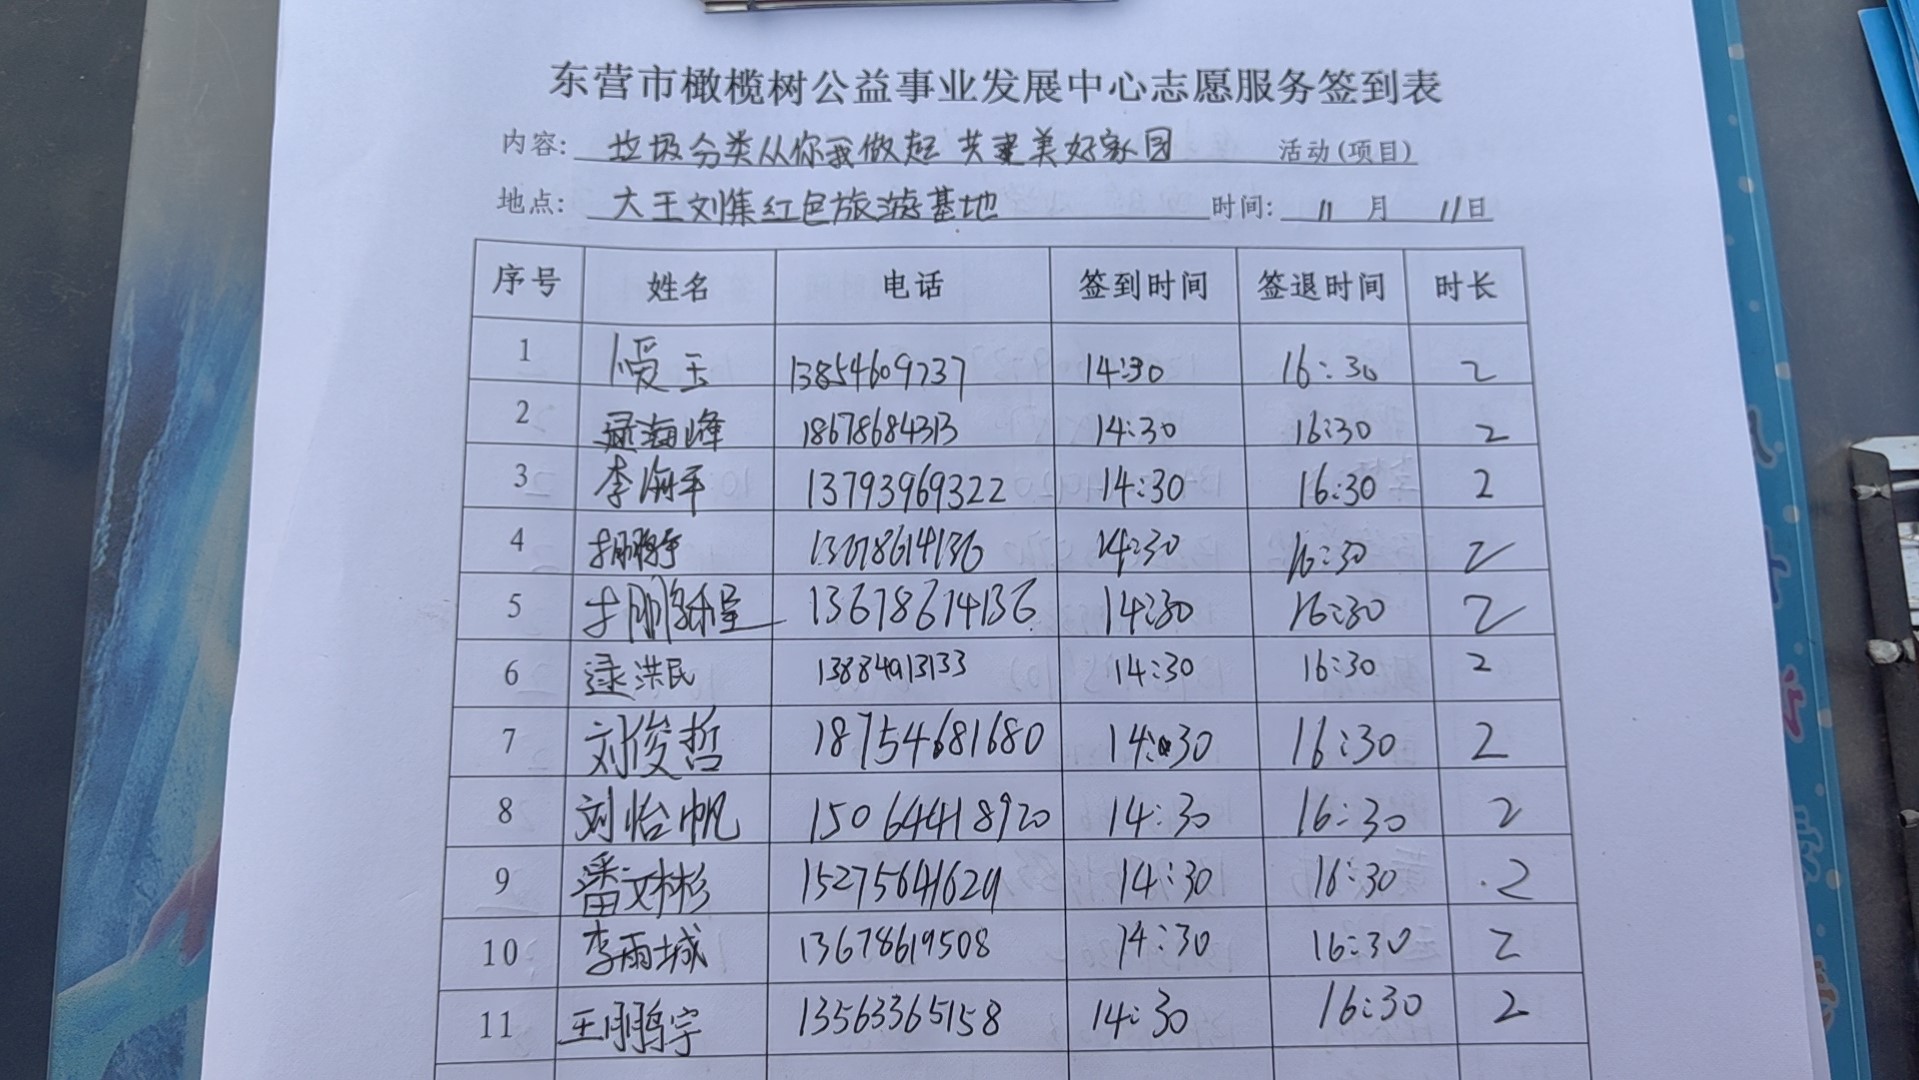 东营市橄榄树公益事业发展中心志愿服务签到表
内容: 垃圾分类从你我做起 共建美好家园 活动(项目)
地点: 大王刘集红色旅游基地 时间: 11 月 11日
序号 姓名 电话 签到时间 签退时间 时长
1 玉 13854609737 14:30 16:30 2
2 逯海峰 18678684313 14:30 16:30 2
3 李海平 13793969322 14:30 16:30 2
4 14:30 16:30 2
5 13678614136 14:30 16:30 2
6 逯洪民 14:30 16:30 2
7 刘俊哲 18754681680 14:30 16:30 2
8 刘怡帆 15064418920 14:30 16:30 2
9 潘文彬 14:30 16:30 2
10 李雨城 13678619508 14:30 16:30 2
11 王鹏宇 13563365158 14:30 16:30 2